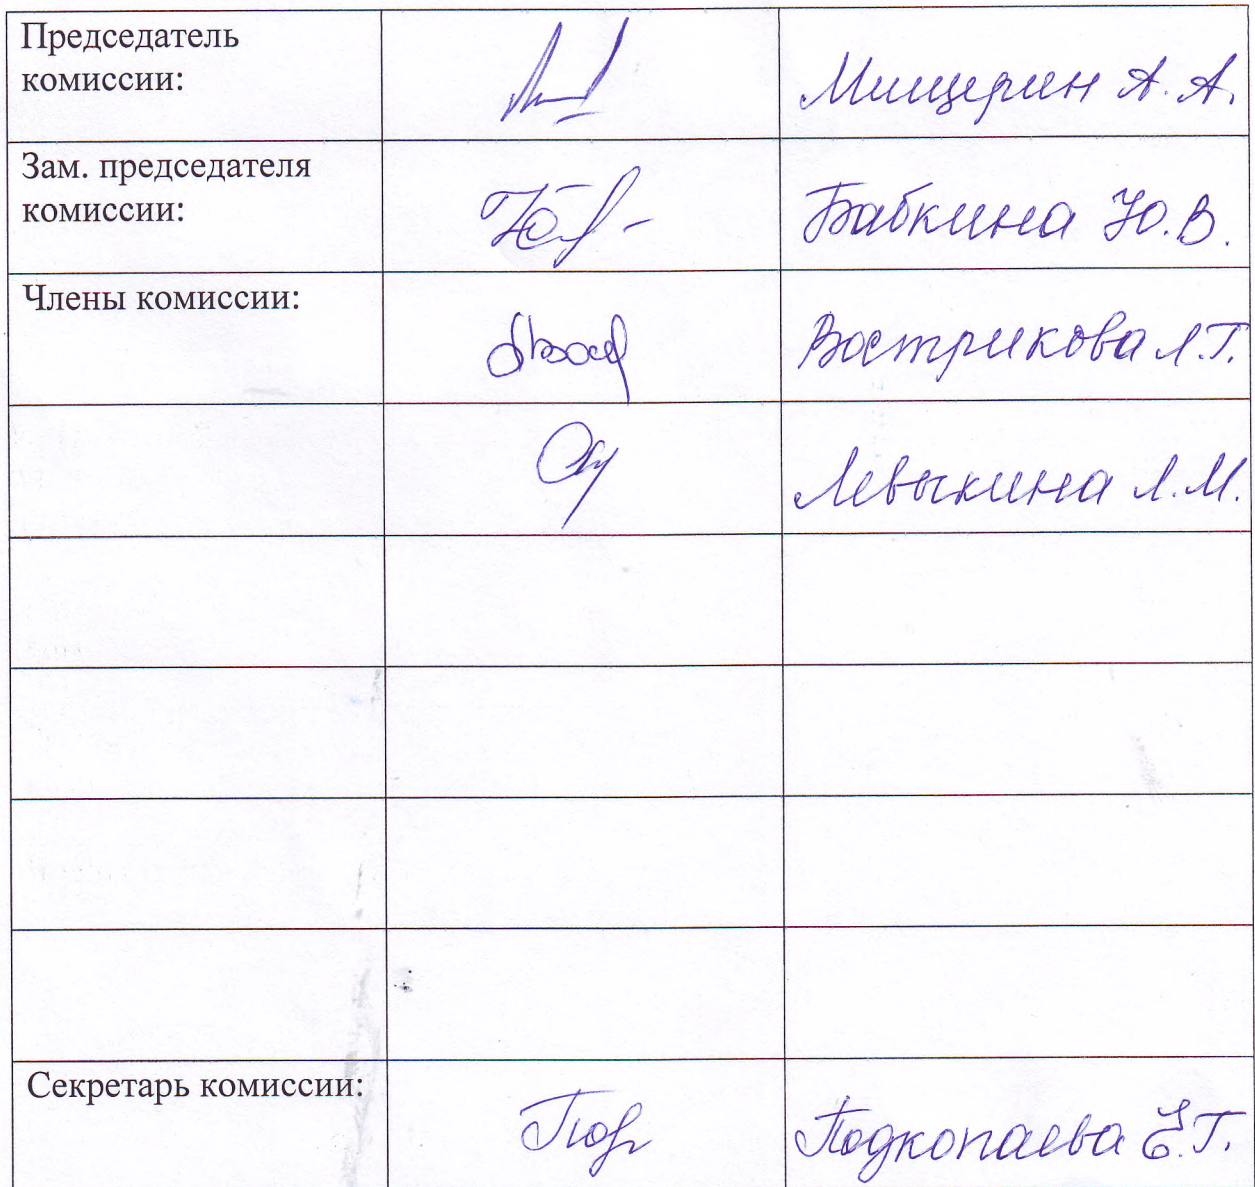 Председатель
комиссии:
Мищерин А. А.
Зам. председателя
комиссии:
Бабкина Ю. В.
Члены комиссии:
Вострикова Л. Г.
Левыкина Л. М.
Секретарь комиссии:
Подкопаева Е. Г.